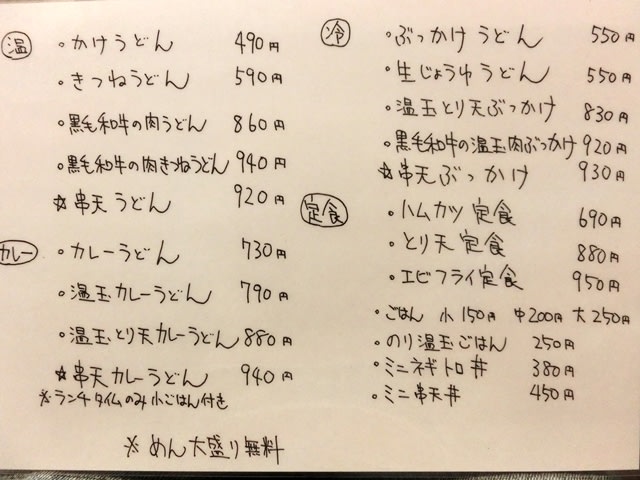 温
・かけうどん 490円
・きつねうどん 590円
・黒毛和牛の肉うどん 860円
・黒毛和牛の肉きつねうどん 940円
☆串天うどん 920円
カレー
・カレーうどん 730円
・温玉カレーうどん 790円
・温玉とり天カレーうどん 880円
☆串天カレーうどん 940円
※ランチタイムのみ小ごはん付き
冷
・ぶっかけうどん 550円
・生じょうゆうどん 550円
・温玉とり天ぶっかけ 830円
・黒毛和牛の温玉肉ぶっかけ 920円
☆串天ぶっかけ 930円
定食
・ハムカツ定食 690円
・とり天定食 880円
・エビフライ定食 950円
・ごはん 小150円 中200円 大250円
・のり温玉ごはん 250円
・ミニネギトロ丼 380円
・ミニ串天丼 450円
※めん大盛り無料